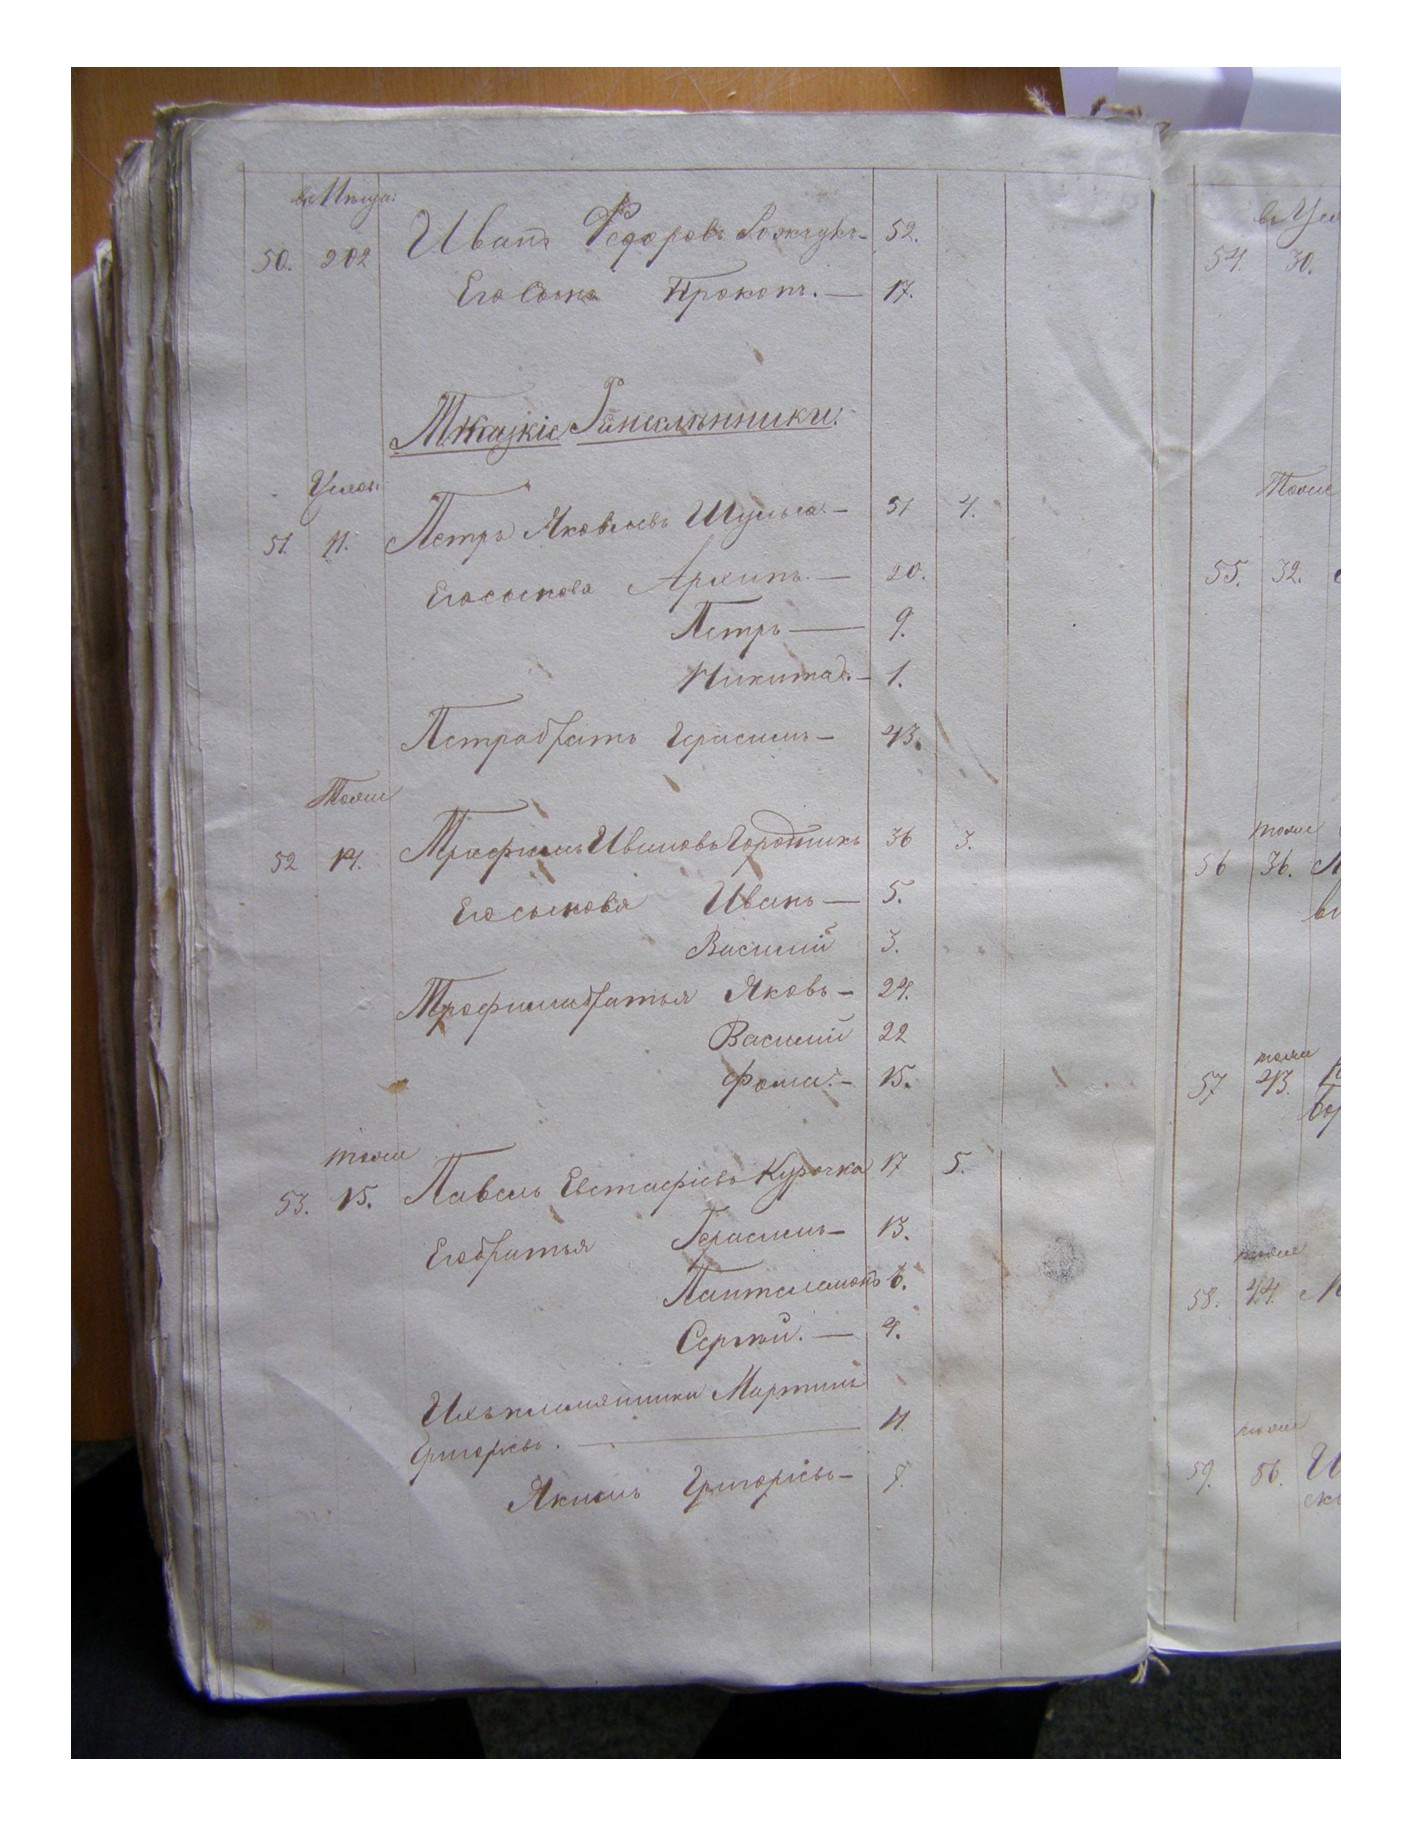 50. 202 Иванъ Федоровъ 52.
Его Сынъ Прокопъ. — 17.
51. 11. Петръ Яковлевъ Шульга — 51 4.
Его сыновья Архипъ. — 20.
Петръ — 9.
Никита. — 1.
Петра братъ Герасимъ — 43.
Тоже
52 14. Трофимъ Ивановъ Городникъ 36 3.
Его сыновья Иванъ — 5.
Василій 3.
Трофима братья Яковъ — 24.
Василій 22
Фома. — 15.
тоже
53. 15. Павелъ Евстафіевъ Курочка 17 5.
Его братья Герасимъ — 13.
Панталемонъ 6.
Сергѣй. — 4.
Ихъ племянники Мартинъ
Григорьевъ. — 11.
Якимъ Григорьевъ —
54. 30.
Тоже
55. 32.
тоже
56 36.
тоже
57 43.
тоже
58. 44.
тоже
59. 56.